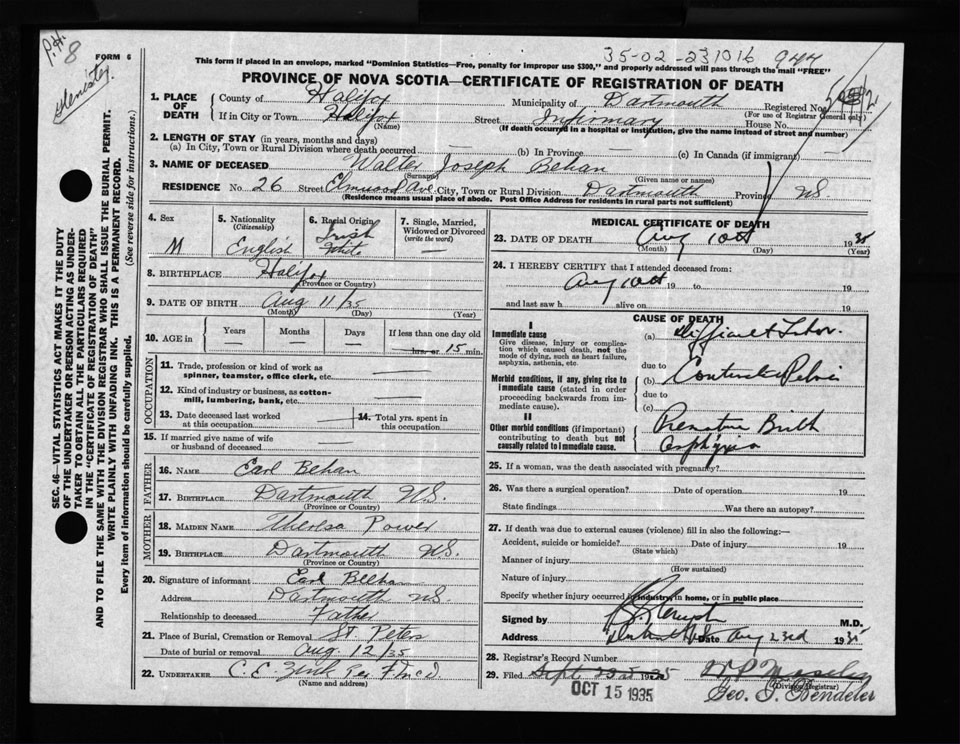 P.H. 8
FORM 6
35-02-231016 947
This form if placed in an envelope, marked "Dominion Statistics—Free, penalty for improper use $300," and properly addressed will pass through the mail "FREE"
PROVINCE OF NOVA SCOTIA—CERTIFICATE OF REGISTRATION OF DEATH
1. PLACE OF DEATH
County of Halifax
Municipality of Dartmouth
Registered No.
(For use of Registrar General only)
If in City or Town Halifax
(Name)
Street Infirmary House No.
(If death occurred in a hospital or institution, give the name instead of street and number)
2. LENGTH OF STAY (in years, months and days)
(a) In City, Town or Rural Division where death occurred — (b) In Province — (c) In Canada (if immigrant) —
3. NAME OF DECEASED Walter Joseph Behan
(Surname) (Given name or names)
RESIDENCE No 26 Street Elmwood Ave. City, Town or Rural Division Dartmouth Province NS.
(Residence means usual place of abode. Post Office Address for residents in rural parts not sufficient)
4. Sex
M
5. Nationality
(Citizenship)
English
6. Racial Origin
Irish
White
7. Single, Married, Widowed or Divorced
(write the word)
—
8. BIRTHPLACE Halifax
(Province or Country)
9. DATE OF BIRTH Aug 11/35
(Month) (Day) (Year)
10. AGE in
Years Months Days If less than one day old
— — — hrs. or 15 min.
OCCUPATION
11. Trade, profession or kind of work as spinner, teamster, office clerk, etc. —
12. Kind of industry or business, as cotton-mill, lumbering, bank, etc. —
13. Date deceased last worked at this occupation —
14. Total yrs. spent in this occupation —
15. If married give name of wife or husband of deceased —
FATHER
16. NAME Earl Behan
17. BIRTHPLACE Dartmouth N.S.
(Province or Country)
MOTHER
18. MAIDEN NAME Theresa Power
19. BIRTHPLACE Dartmouth NS.
(Province or Country)
20. Signature of informant Earl Behan
Address Dartmouth NS.
Relationship to deceased Father
21. Place of Burial, Cremation or Removal St Peters
Date of burial or removal Aug. 12/35
22. UNDERTAKER C. E.
(Name and address)
MEDICAL CERTIFICATE OF DEATH
23. DATE OF DEATH Aug 10th 1935
(Month) (Day) (Year)
24. I HEREBY CERTIFY that I attended deceased from:
Aug 10th 19 to 19
and last saw h alive on 19
CAUSE OF DEATH
I
Immediate cause
Give disease, injury or complication which caused death, not the mode of dying, such as heart failure, asphyxia, asthenia, etc
(a) Difficult Labor.
due to
Morbid conditions, if any, giving rise to immediate cause (stated in order proceeding backwards from immediate cause).
(b) Contracted Pelvis
due to
(c)
II
Other morbid conditions (if important) contributing to death but not causally related to immediate cause.
Premature Birth
Asphyxia
25. If a woman, was the death associated with pregnancy
26. Was there a surgical operation? Date of operation 19
State findings Was there an autopsy?
27. If death was due to external causes (violence) fill in also the following:—
Accident, suicide or homicide? Date of injury 19
(State which)
Manner of injury
(How sustained)
Nature of injury
Specify whether injury occurred in industry, in home, or in public place
Signed by M.D.
Address Date Aug 23rd 1935
28. Registrar's Record Number
29. Filed Sept 23rd 1935
(Division Registrar)
OCT 15 1935
Geo. T. Bendeler
SEC. 46—VITAL STATISTICS ACT MAKES IT THE DUTY
OF THE UNDERTAKER OR PERSON ACTING AS UNDER-
TAKER TO OBTAIN ALL THE PARTICULARS REQUIRED
IN THE "CERTIFICATE OF REGISTRATION OF DEATH"
AND TO FILE THE SAME WITH THE DIVISION REGISTRAR WHO SHALL ISSUE THE BURIAL PERMIT.
WRITE PLAINLY WITH UNFADING INK. THIS IS A PERMANENT RECORD.
Every item of information should be carefully supplied. (See reverse side for instructions.)